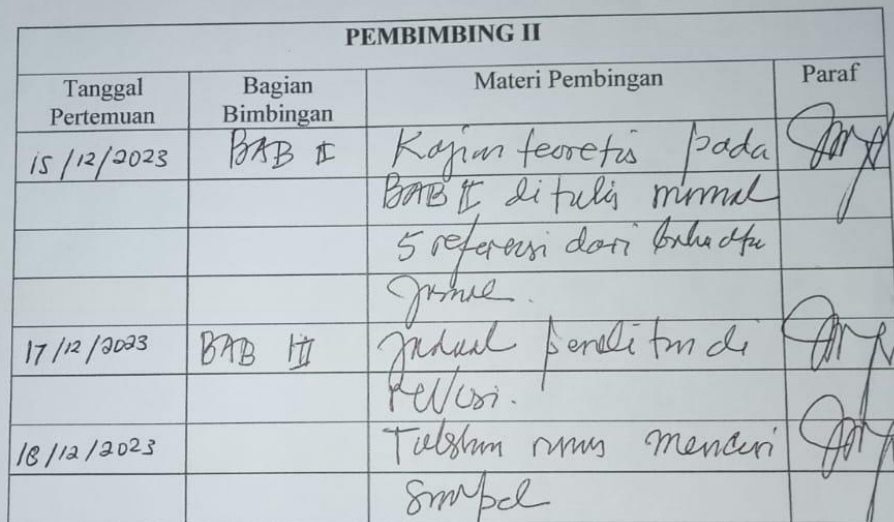 PEMBIMBING II
Tanggal Pertemuan Bagian Bimbingan Materi Pembingan Paraf
15/12/2023 BAB II Kajian teoretis pada
BAB II ditulis minimal
5 referensi dari
Jurnal.
17/12/2023 BAB III Jadwal penelitian di
revisi.
18/12/2023 Tuliskan rumus mencari
Sampel